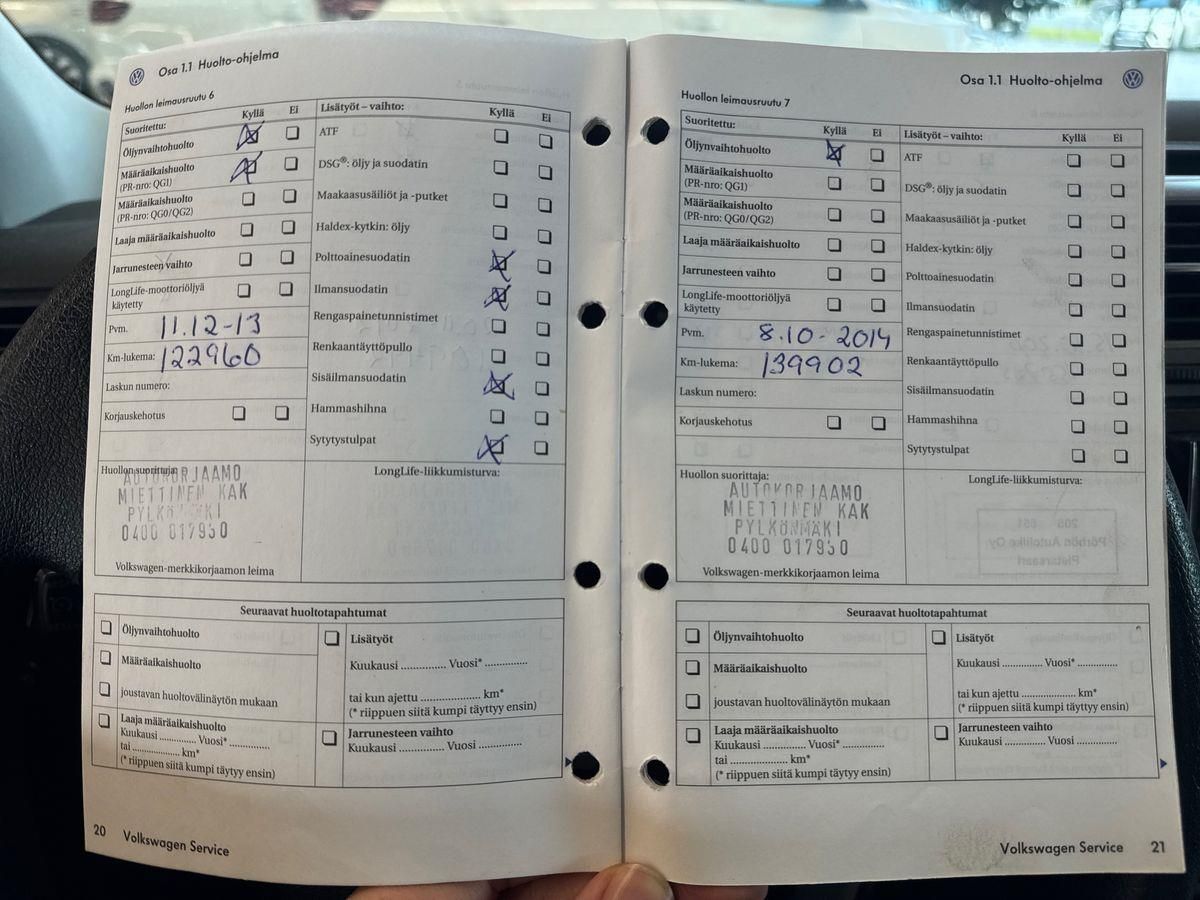 Osa 1.1 Huolto-ohjelma
Huollon leimausruutu 6
Suoritettu: Kyllä Ei
Öljynvaihtohuolto
Määräaikaishuolto
(PR-nro: QG1)
Määräaikaishuolto
(PR-nro: QG0/QG2)
Laaja määräaikaishuolto
Jarrunesteen vaihto
LongLife-moottoriöljyä
käytetty
Pvm. 11.12-13
Km-lukema: 122960
Laskun numero:
Korjauskehotus
Lisätyöt – vaihto: Kyllä Ei
ATF
DSG®: öljy ja suodatin
Maakaasusäiliöt ja -putket
Haldex-kytkin: öljy
Polttoainesuodatin
Ilmansuodatin
Rengaspainetunnistimet
Renkaantäyttöpullo
Sisäilmansuodatin
Hammashihna
Sytytystulpat
Huollon suorittaja:
AUTOKORJAAMO
MIETTINEN KAK
PYLKÖNMÄKI
0400 017950
Volkswagen-merkkikorjaamon leima
LongLife-liikkumisturva:
Seuraavat huoltotapahtumat
Öljynvaihtohuolto
Määräaikaishuolto
joustavan huoltovälinäytön mukaan
Laaja määräaikaishuolto
Kuukausi .............. Vuosi* ..............
tai .................. km*
(* riippuen siitä kumpi täytyy ensin)
Lisätyöt
Kuukausi .............. Vuosi* ..............
tai kun ajettu .................... km*
(* riippuen siitä kumpi täyttyy ensin)
Jarrunesteen vaihto
Kuukausi .............. Vuosi ..............
20 Volkswagen Service
Osa 1.1 Huolto-ohjelma
Huollon leimausruutu 7
Suoritettu: Kyllä Ei
Öljynvaihtohuolto
Määräaikaishuolto
(PR-nro: QG1)
Määräaikaishuolto
(PR-nro: QG0/QG2)
Laaja määräaikaishuolto
Jarrunesteen vaihto
LongLife-moottoriöljyä
käytetty
Pvm. 8.10-2014
Km-lukema: 139902
Laskun numero:
Korjauskehotus
Lisätyöt – vaihto: Kyllä Ei
ATF
DSG®: öljy ja suodatin
Maakaasusäiliöt ja -putket
Haldex-kytkin: öljy
Polttoainesuodatin
Ilmansuodatin
Rengaspainetunnistimet
Renkaantäyttöpullo
Sisäilmansuodatin
Hammashihna
Sytytystulpat
Huollon suorittaja:
AUTOKORJAAMO
MIETTINEN KAK
PYLKÖNMÄKI
0400 017950
Volkswagen-merkkikorjaamon leima
LongLife-liikkumisturva:
Seuraavat huoltotapahtumat
Öljynvaihtohuolto
Määräaikaishuolto
joustavan huoltovälinäytön mukaan
Laaja määräaikaishuolto
Kuukausi .............. Vuosi* ..............
tai .................. km*
(* riippuen siitä kumpi täytyy ensin)
Lisätyöt
Kuukausi .............. Vuosi* ..............
tai kun ajettu .................... km*
(* riippuen siitä kumpi täyttyy ensin)
Jarrunesteen vaihto
Kuukausi .............. Vuosi ..............
Volkswagen Service 21